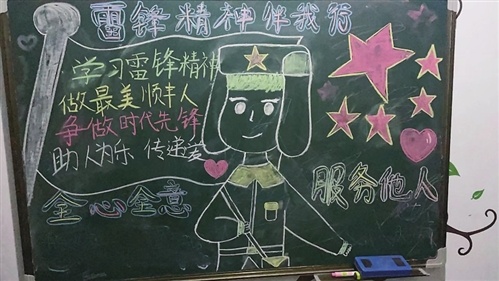 雷锋精神伴我行
学习雷锋精神
做最美顺丰人
争做时代先锋
助人为乐 传递爱
全心全意
服务他人